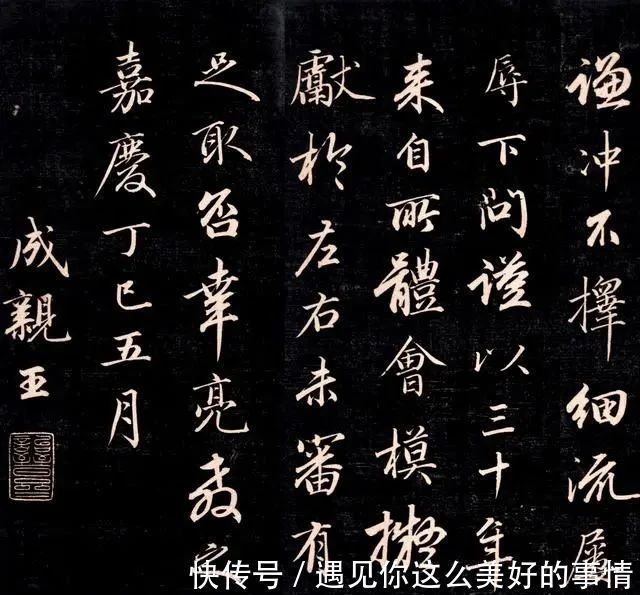 謙冲不擇細流屢
辱下問謹以三十年
来自所體會模擬
獻於左右未審有
足取否幸亮教
嘉慶丁巳五月
成親王
快传号 / 遇见你这么美好的事情